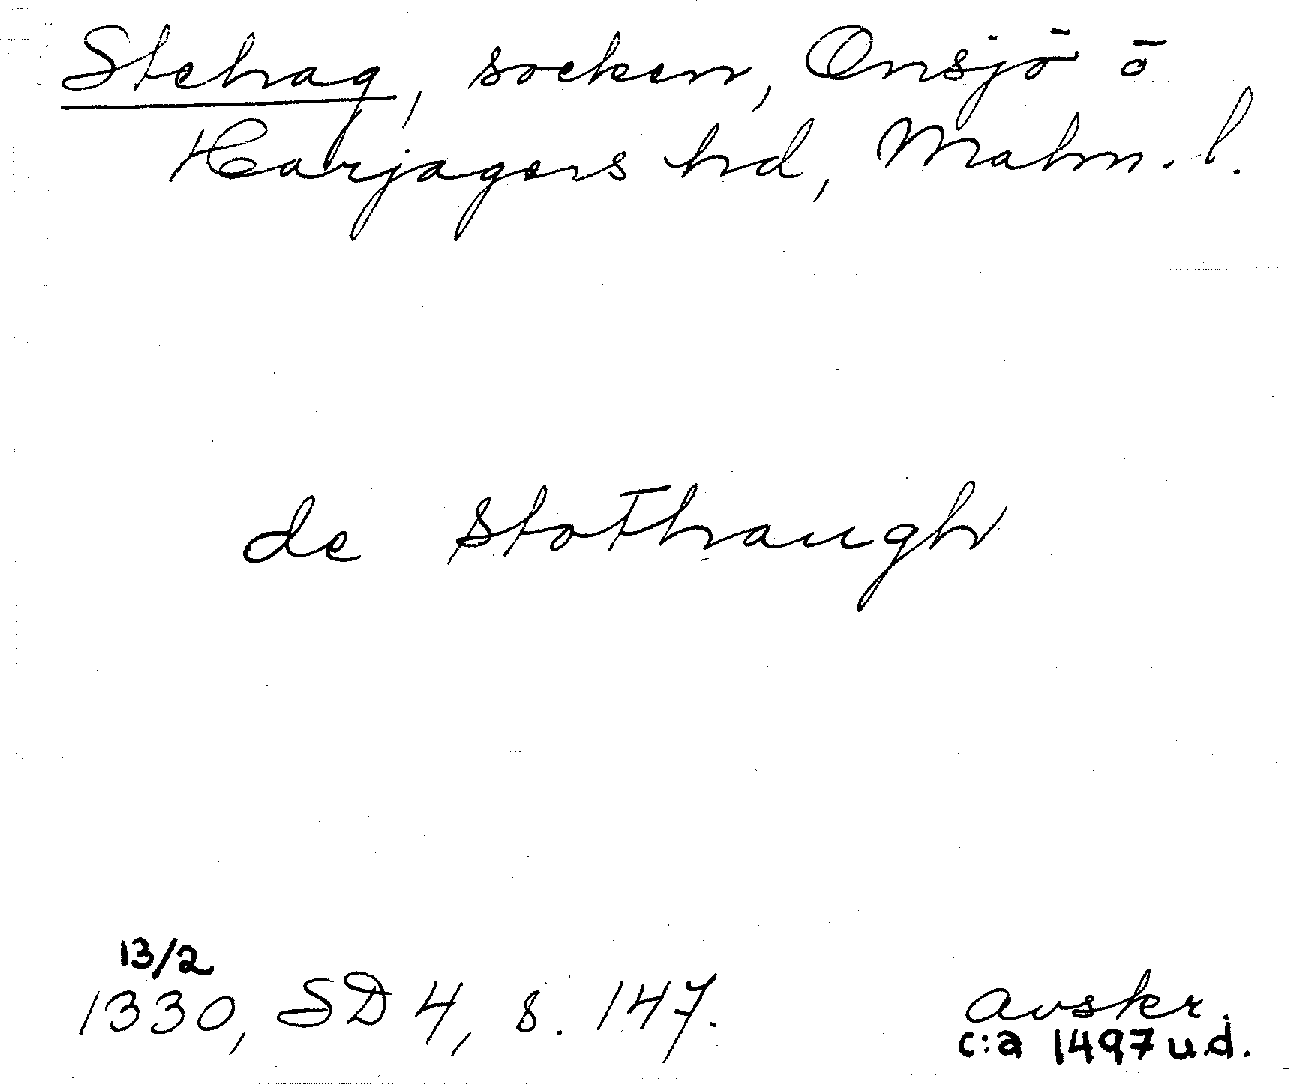 Stehag, socken, Onsjö ö
Harjagers hd, Malm. l.
de Stothaugh
13/2
1330, SD 4, s. 147.
avskr.
c:a 1497 u.d.